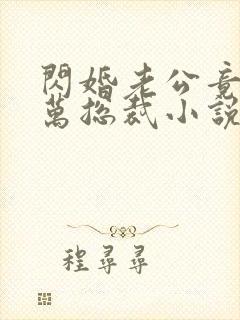 閃婚老公竟
萬總裁小說
程尋尋